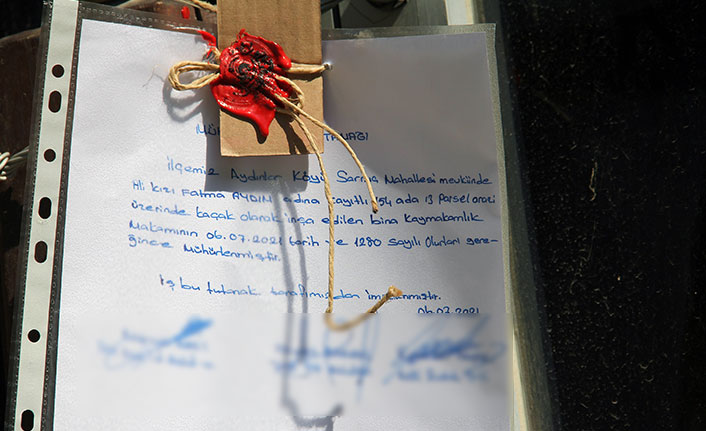 MÜH TANAĞI
İlçemiz Aydınlar Köyü Sarma Mahallesi mevkiinde
Ali kızı Fatma AYDIN adına kayıtlı 154 ada 13 Parsel arazi
üzerinde kaçak olarak inşa edilen bina Kaymakamlık
Makamının 06.07.2021 tarih ve 1280 sayılı Olurları gere-
ğince Mühürlenmiştir.
İş bu tutanak tarafımızdan imzalanmıştır.